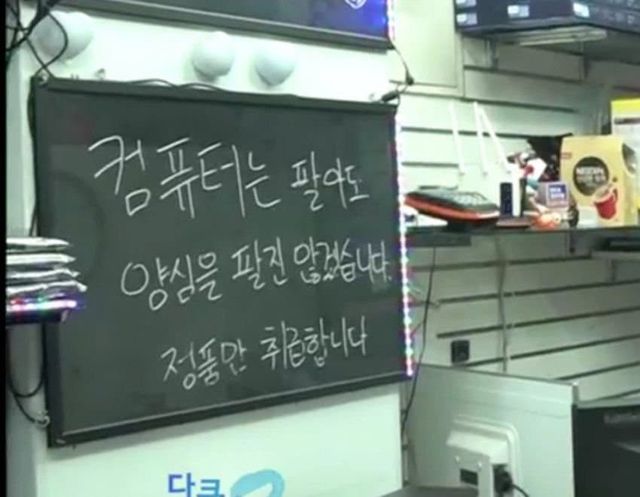 컴퓨터는 팔아도
양심을 팔진 않겠습니다.
정품만 취급합니다
다크
NESCAFÉ